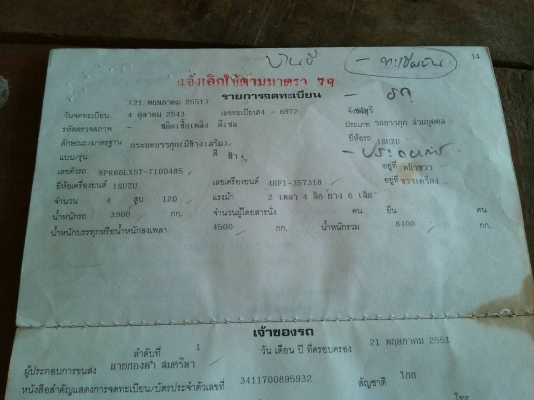 14
แจ้งเลิกใช้ตามมาตรา 79
(21 พฤษภาคม 2551) รายการจดทะเบียน
วันจดทะเบียน 4 ตุลาคม 2543 เลขทะเบียน 84 - 6972 จังหวัด
รหัสตรวจสภาพ - ชนิดเชื้อเพลิง ดีเซล ประเภท รถบรรทุก ส่วนบุคคล
ลักษณะ/มาตรฐาน กระบะบรรทุก(มีข้างเสริม) ยี่ห้อรถ ISUZU
แบบ/รุ่น สี ฟ้า
เลขตัวรถ NPR66LX5T-7100485 อยู่ที่
ยี่ห้อเครื่องยนต์ ISUZU เลขเครื่องยนต์ 4HF1-357318 อยู่ที่ ขวาเครื่อง
จำนวน 4 สูบ 120 แรงม้า 2 เพลา 4 ล้อ ยาง 6 เส้น
น้ำหนักรถ 3900 กก. จำนวนผู้โดยสารนั่ง คน ยืน คน
น้ำหนักบรรทุกหรือน้ำหนักลงเพลา 4500 กก. น้ำหนักรวม 8400 กก.
เจ้าของรถ
ลำดับที่ 1 วัน เดือน ปี ที่ครอบครอง 21 พฤษภาคม 2551
ผู้ประกอบการขนส่ง
หนังสือสำคัญแสดงการจดทะเบียน/บัตรประจำตัวเลขที่ 3411700895932 สัญชาติ ไทย